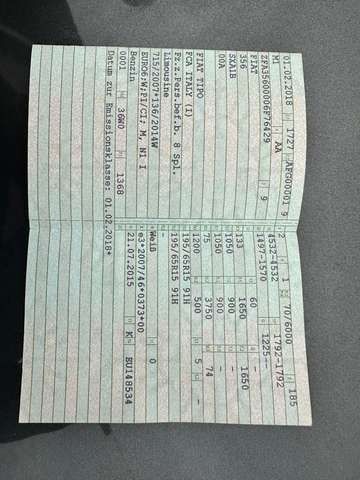 01.02.2018 1727 AFG00001 9
M1 AA
ZFA35600006F76429 9
FIAT
356
SXA1B
00A
FIAT TIPO
FCA ITALY (I)
Fz.z.Pers.bef.b. 8 Spl.
Limousine
715/2007*136/2014W
EURO6;W;PI/CI; M, N1 I
Benzin
0001 36W0 1368
Datum zur Emissionsklasse: 01.02.2018*
2 1 70/6000 185
4532-4532 1792-1792
1497-1570 1225--
- 60 -
133 1650 1650
1050 900 -
1050 900 -
75 3750 74
1200 500 5 -
195/65R15 91H
195/65R15 91H
-
Weiß 0
e3*2007/46*0373*00
21.07.2015 K EU148534